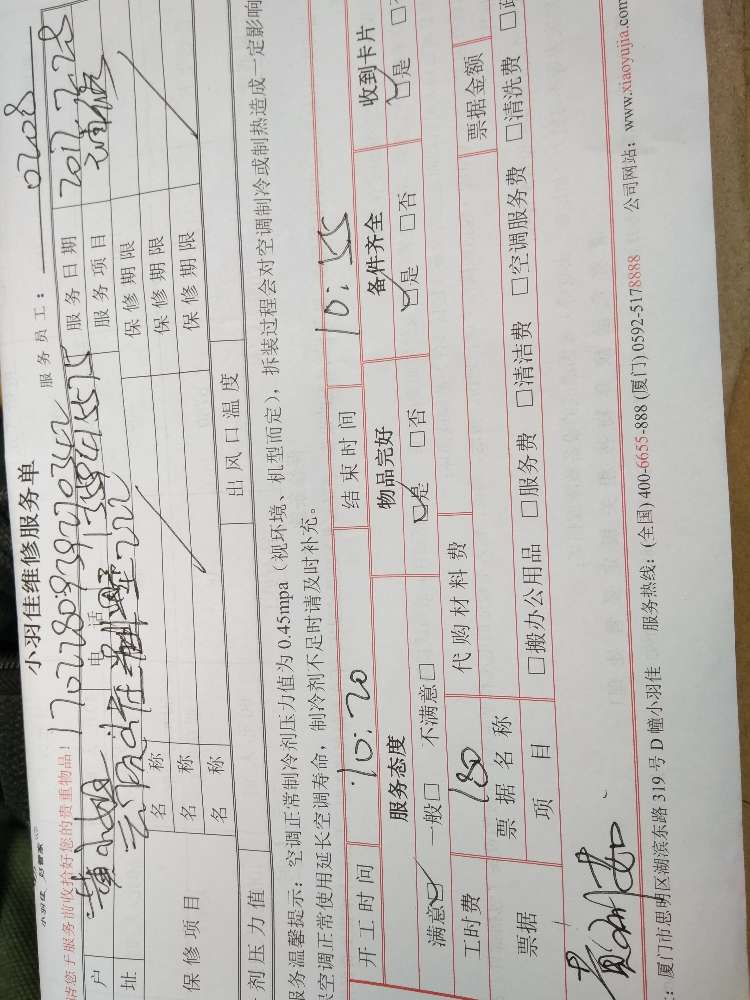 小羽佳维修服务单
小羽佳 好管家
请您于服务前收拾好您的贵重物品！
服务员工： 0208
户 黄小姐 电话 服务日期 2017.7.28
址 服务项目
保修项目 名称 保修期限
名称 保修期限
名称 保修期限
剂压力值 出风口温度
服务温馨提示：空调正常制冷剂压力值为 0.45mpa（视环境、机型而定），拆装过程会对空调制冷或制热造成一定影响
空调正常使用延长空调寿命，制冷剂不足时请及时补充。
开工时间 10:20 结束时间 10:55
服务态度 物品完好 备件齐全 收到卡片
满意 一般 不满意 是 否 是 否 是
工时费 180 代购材料费 票据金额
票据 票据名称
项目 搬办公用品 服务费 清洁费 空调服务费 清洗费
：厦门市思明区湖滨东路 319 号 D 幢小羽佳 服务热线：(全国) 400-6655-888 (厦门) 0592-5178888 公司网站：www.xiaoyujia.com